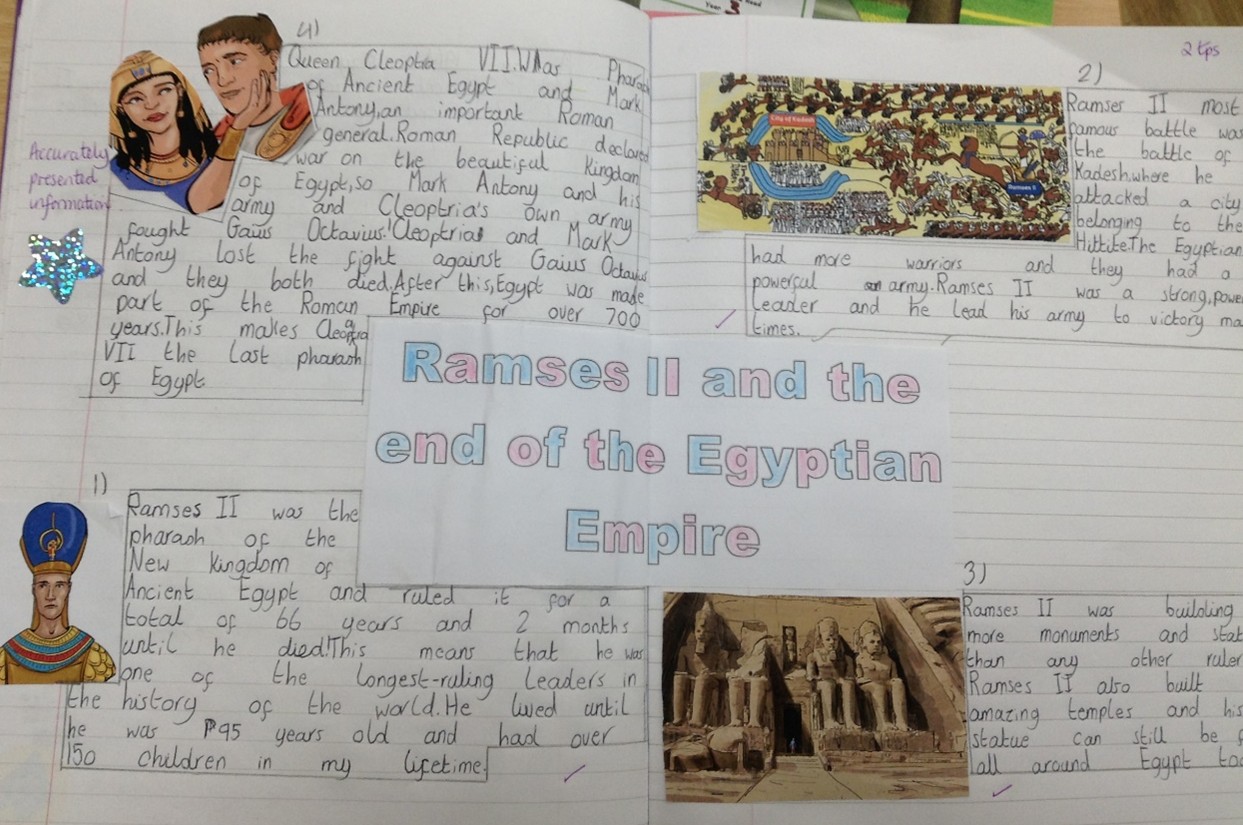 4)
Queen Cleoptra VII.WAas Pharaoh
of Ancient Egypt and Mark
Antony,an important Roman
general.Roman Republic declared
war on the beautiful kingdom
of Egypt,so Mark Antony and his
army and Cleoptria's own army
fought Gaius Octavius!Cleoptrias and Mark
Antony lost the fight against Gaius Octavius
and they both died.After this,Egypt was made
part of the Roman Empire for over 700
years.This makes Cleoptra
VII the last pharaoh
of Egypt
Accurately
presented
information
2 tps
2)
Ramses II most
famous battle was
the battle of
Kadesh,where he
attacked a city
belonging to the
Hittite.The Egyptian
had more warriors and they had a
powerful army.Ramses II was a strong,power
leader and he lead his army to victory ma
times.
City of Kadesh
Ramses II
Ramses II and the
end of the Egyptian
Empire
1)
Ramses II was the
pharaoh of the
New kingdom of
Ancient Egypt and ruled it for a
total of 66 years and 2 months
until he died!This means that he was
one of the longest-ruling leaders in
the history of the world.He lived until
he was 95 years old and had over
150 children in my lifetime.
3)
Ramses II was building
more monuments and stat
than any other ruler
Ramses II also built
amazing temples and his
statue can still be f
all around Egypt tod